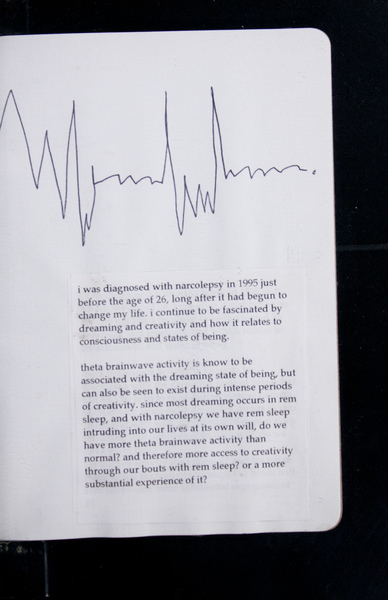 i was diagnosed with narcolepsy in 1995 just
before the age of 26, long after it had begun to
change my life. i continue to be fascinated by
dreaming and creativity and how it relates to
consciousness and states of being.
theta brainwave activity is know to be
associated with the dreaming state of being, but
can also be seen to exist during intense periods
of creativity. since most dreaming occurs in rem
sleep, and with narcolepsy we have rem sleep
intruding into our lives at its own will, do we
have more theta brainwave activity than
normal? and therefore more access to creativity
through our bouts with rem sleep? or a more
substantial experience of it?